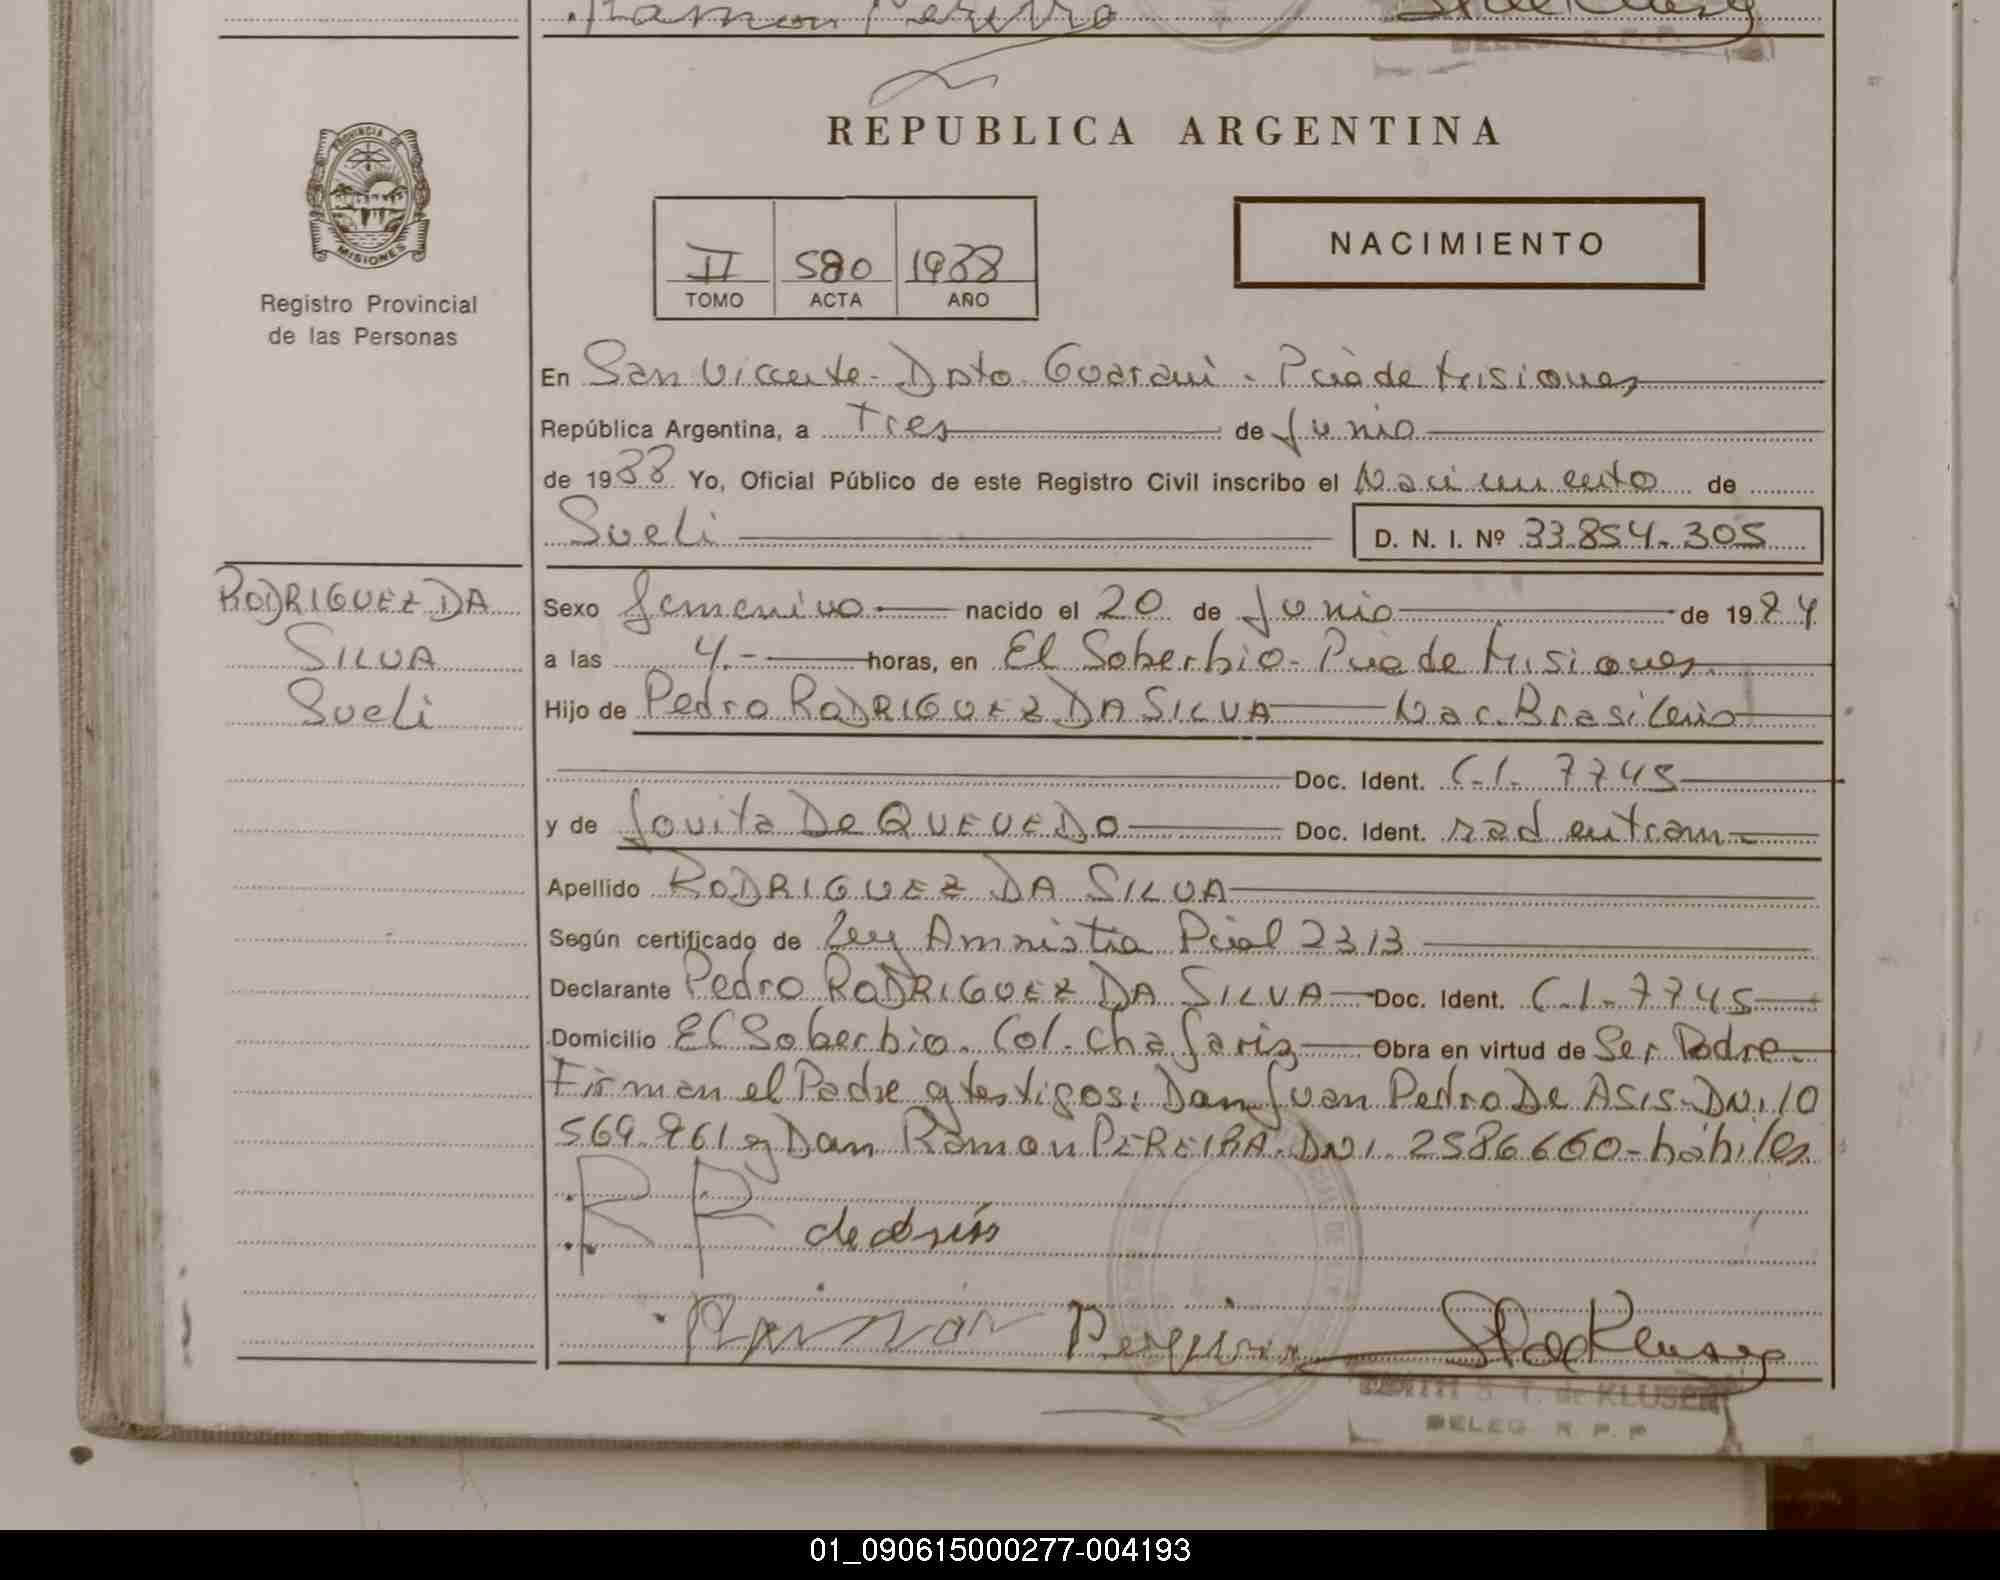 Ramon Pereira
REPUBLICA ARGENTINA
PROVINCIA DE
MISIONES
Registro Provincial
de las Personas
II 580 1988
TOMO ACTA AÑO
NACIMIENTO
En San Vicente - Dpto. Guarani - Pcia de Misiones
República Argentina, a Tres de Junio
de 1988 Yo, Oficial Público de este Registro Civil inscribo el Nacimiento de
Sueli D. N. I. Nº 33.854.305
RODRIGUEZ DA
SILVA
Sueli
Sexo femenino nacido el 20 de Junio de 1984
a las 4.- horas, en El Soberbio - Pcia de Misiones
Hijo de Pedro RODRIGUEZ DA SILVA Nac. Brasileño
Doc. Ident. C.I. 7745
y de Jovita De QUEVEDO Doc. Ident. rad en tram
Apellido RODRIGUEZ DA SILVA
Según certificado de Ley Amnistia Pcial 2313
Declarante Pedro RODRIGUEZ DA SILVA Doc. Ident. C.I. 7745
Domicilio El Soberbio. Col. Chafariz Obra en virtud de Ser Padre.
Firman el Padre y testigos: Don Juan Pedro De ASIS DNI 10
569.961 y Don Ramon PEREIRA. DNI. 2586660 - hábiles
R P de asis
Ramon Pereira
S T de KLUSER
DELEG R. P. P
01_090615000277-004193